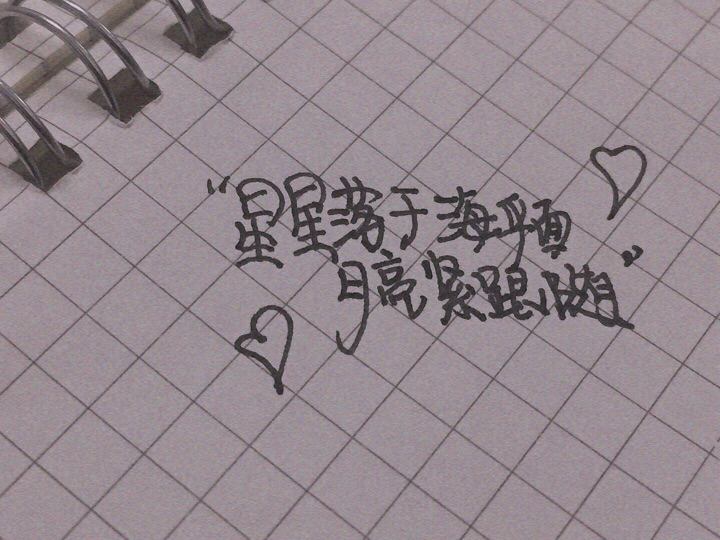 “星星荡于海平面
月亮紧跟随”